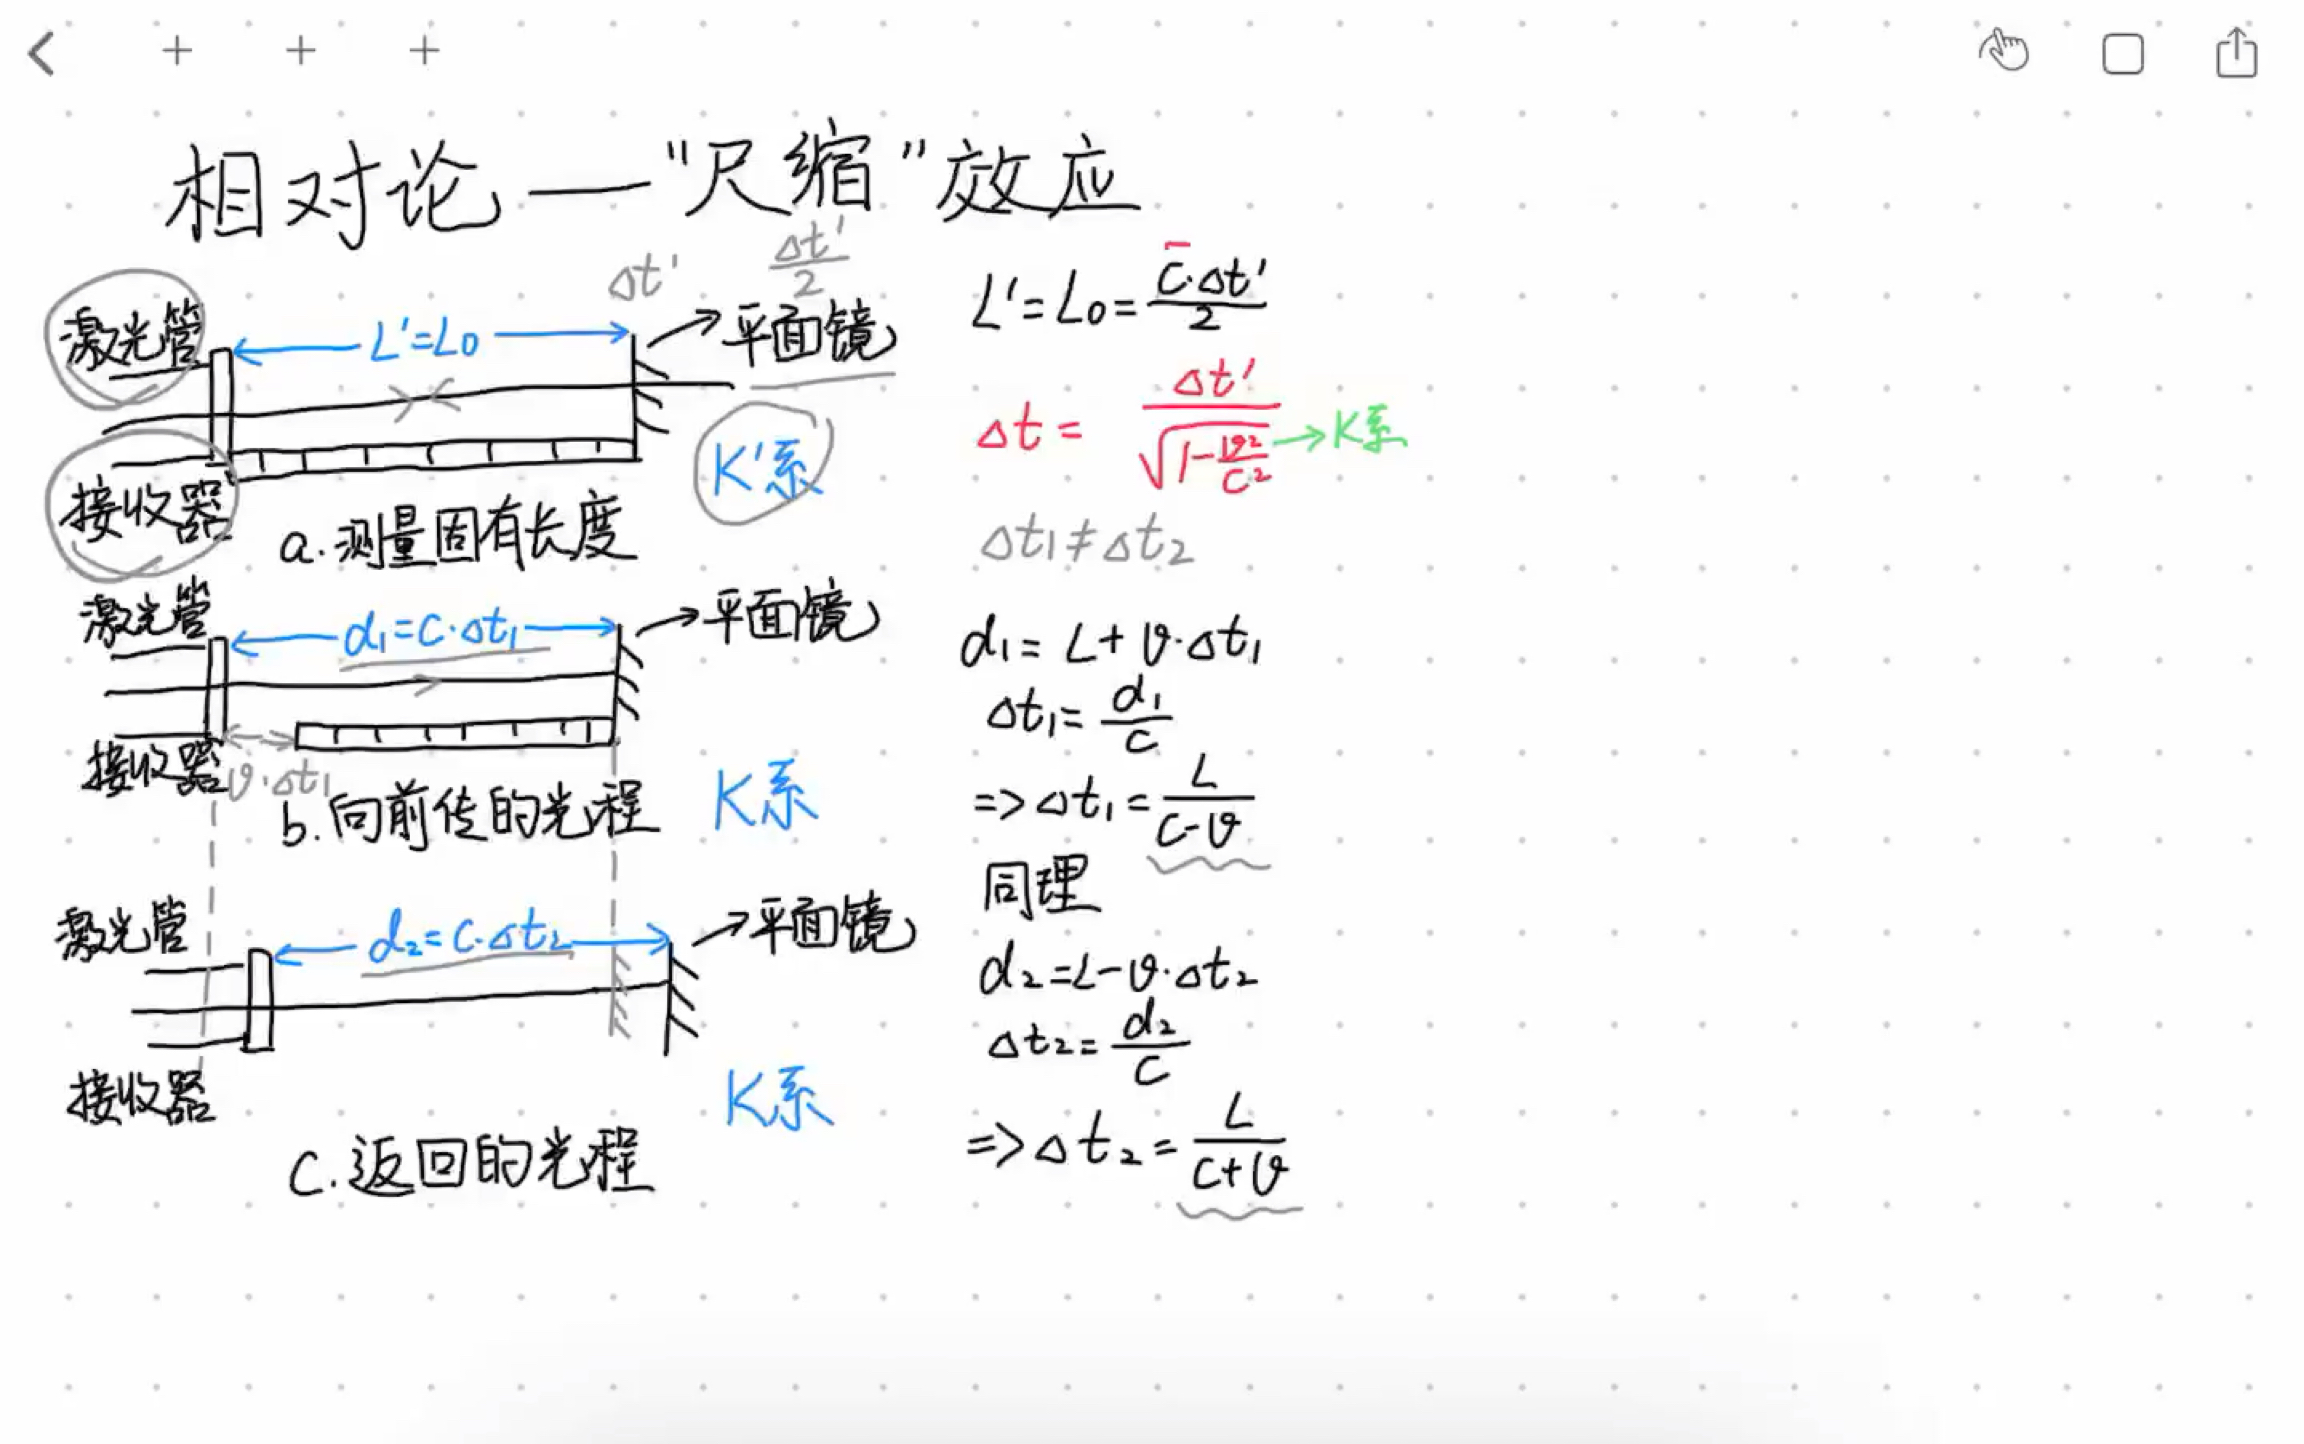 相对论——"尺缩"效应
Δt'
Δt'/2
激光管
L'=L0
平面镜
K'系
接收器
a.测量固有长度
激光管
d1=c·Δt1
平面镜
接收器
v·Δt1
b.向前传的光程
K系
激光管
d2=c·Δt2
平面镜
接收器
K系
c.返回的光程
L'=L0=c·Δt'/2
Δt=Δt'/√(1-v²/c²)→K系
Δt1≠Δt2
d1=L+v·Δt1
Δt1=d1/c
=>Δt1=L/(c-v)
同理
d2=L-v·Δt2
Δt2=d2/c
=>Δt2=L/(c+v)